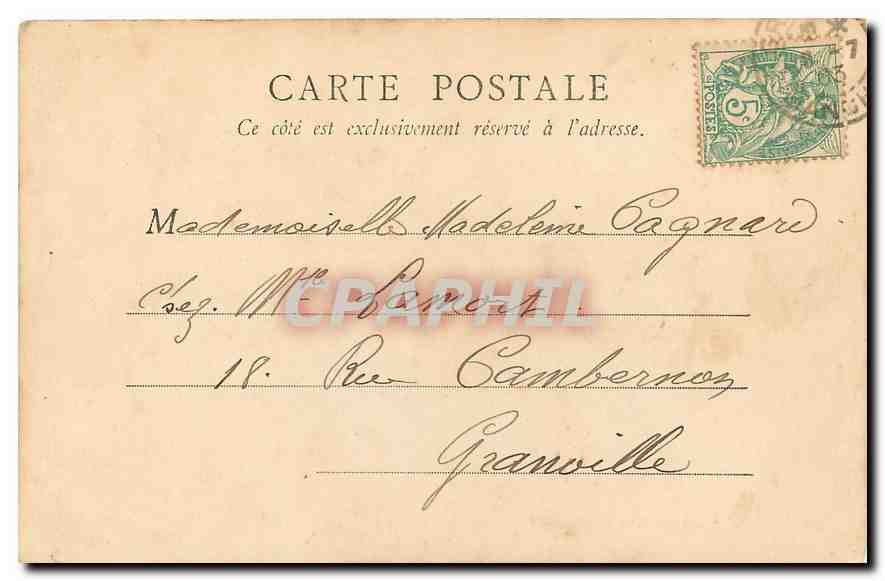 CARTE POSTALE
Ce côté est exclusivement réservé à l'adresse.
5c
POSTES
-7
03
Mademoiselle Madeleine Pagnard
c'sez. Mlle Lamort.
CPAPHIL
18. Rue Cambernon
Granville